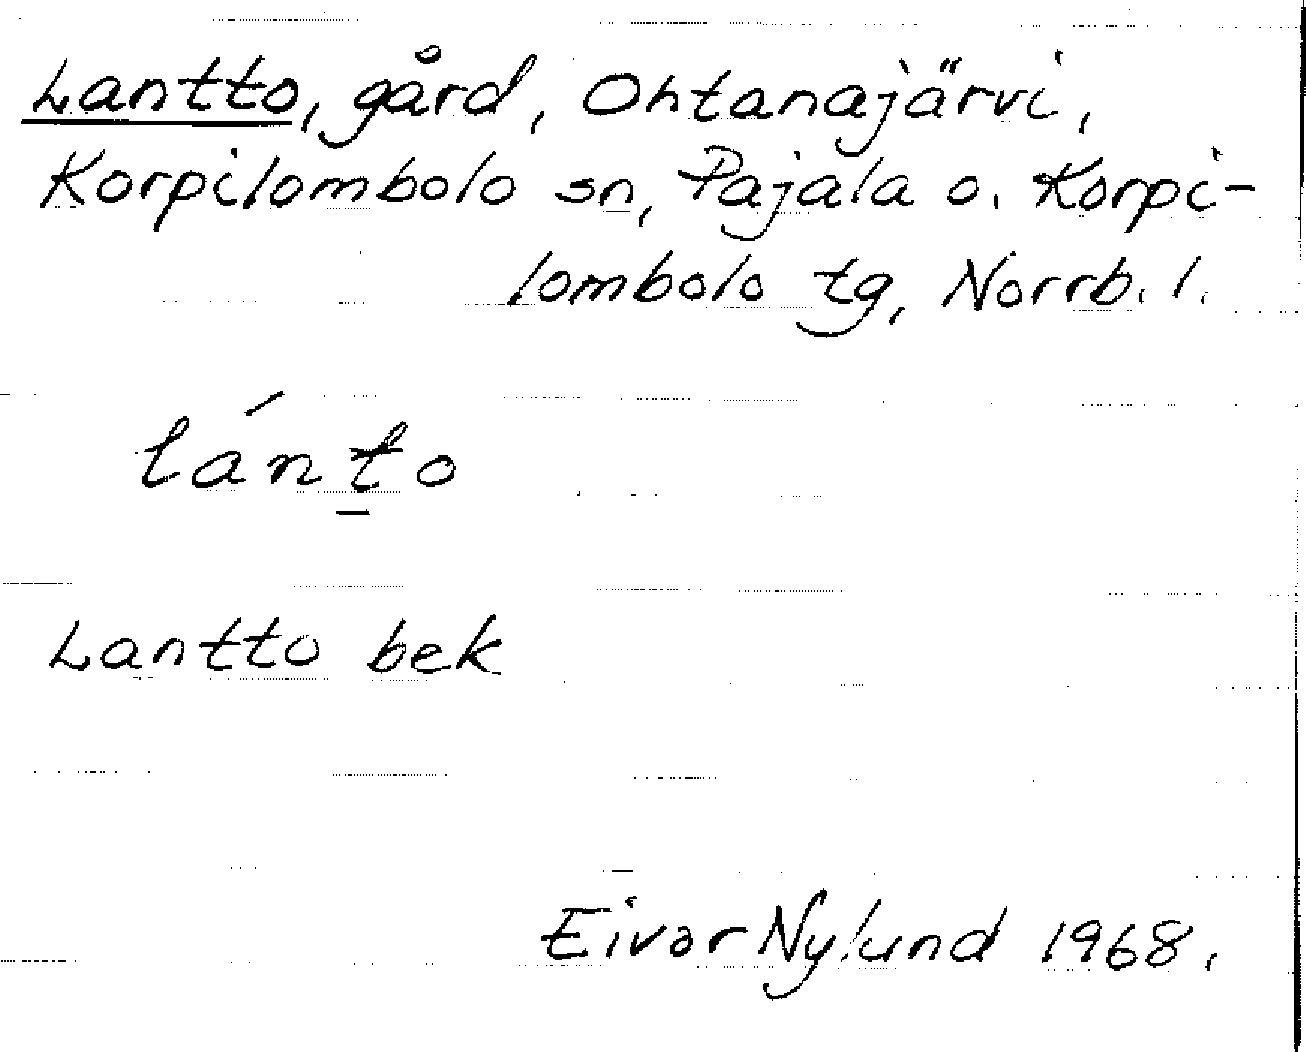 Lantto, gård, Ohtanajärvi,
Korpilombolo sn, Pajala o. Korpi-
lombolo tg, Norrb. l.
lánṯo
Lantto bek
Eivor Nylund 1968.